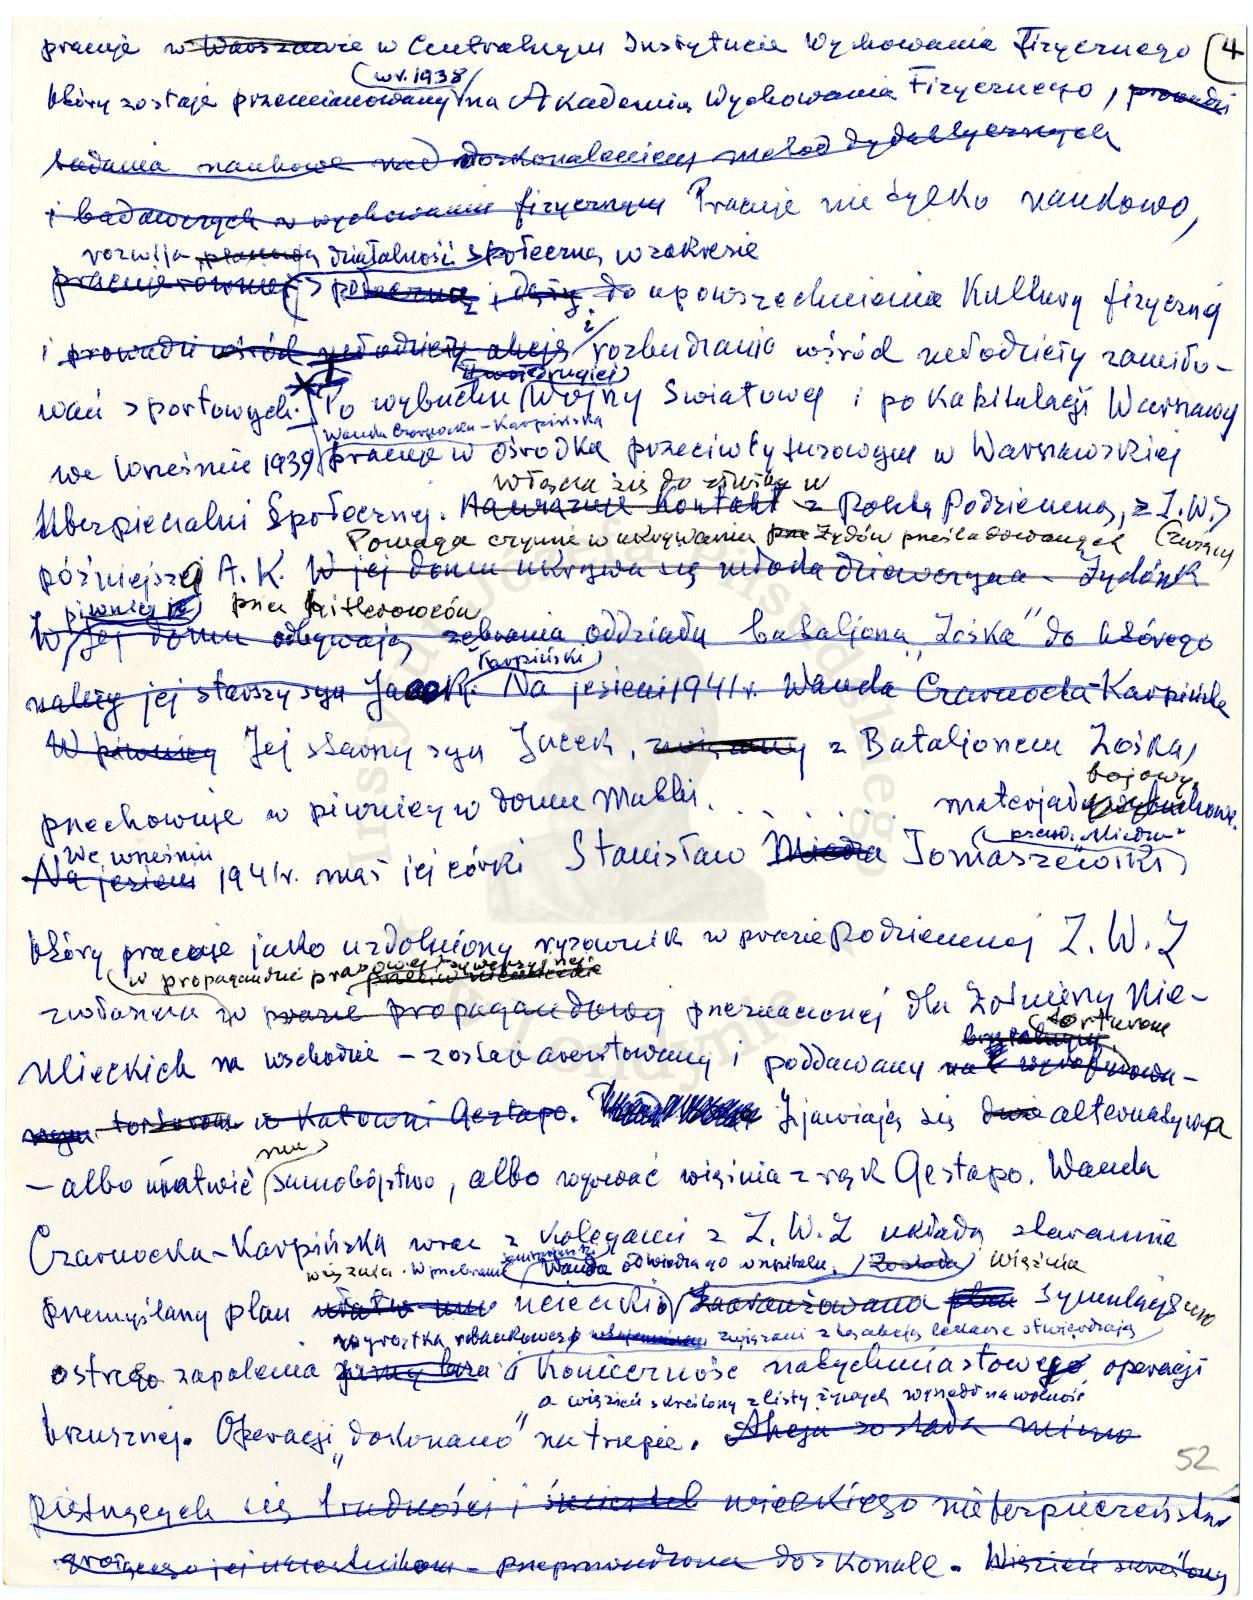 pracuje w Warszawie w Centralnym Instytucie Wychowania Fizycznego (4
(w r. 1938)
który zostaje przemianowany na Akademią Wychowania Fizycznego, prowadzi
badania naukowe nad doskonaleniem metod dydaktycznych
i badawczych w wychowaniu fizycznym Pracuje nie tylko naukowo,
rozwija planową działalność społeczną w zakresie
pracuje również społeczną i dąży do upowszechniania Kultury fizycznej
i prowadzi wśród młodzieży akcję i rozbudzania wśród młodzieży zamiło-
II wojs drugiej
wań sportowych. Po wybuchu Wojny Swiatowej i po Kapitulacji Warszawy
Wanda Czarnocka-Karpińska
we wrześniu 1939 pracuje w ośrodku przeciwtyfusowym w Warszawskiej
włącza się do służby w
Ubezpieczalni Społecznej. Nawiązuje Kontakt z Polską Podziemną, z Z.W.Z
Pomaga czynnie w ukrywaniu Żydów prześladowanych
późniejszej A.K. W jej domu ukrywa się młoda dziewczyna - Żydówk
piwnicy je przez hitlerowców
W jej domu odbywają zebrania oddziału bataljonu "Zośka" do którego
(Karpiński)
należy jej starszy syn Jacek. Na jesieni 1941 r. Wanda Czarnocka-Karpińska
W piwnicy Jej starszy syn Jacek, związany z Bataljonem Zośka,
bojowy
przechowuje w piwnicy w domu Matki. . . . . . materjały wybuchowe.
We wrześniu (pseud. "Miedza"
Na jesieni 1941 r. mąż jej córki Stanisław Miedza Tomaszewski,
który pracuje jako uzdolniony rysownik w prasie Podziemnej Z.W.Z
(w propagandzie prasowej dywersyjnej
zwłaszcza w prasie propagandowej przeznaczonej dla Żołnierzy Nie-
torturom
mieckich na wschodzie - zostaje aresztowany i poddawany
torturom w Katowni Gestapo. Zjawiają się dwie alternatywa
mu
- albo ułatwić samobójstwo, albo wyrwać więźnia z rąk Gestapo. Wanda
Czarnocka-Karpińska wraz z Kolegami z Z.W.Z układa starannie
więźnia. W przebraniu Wanda odwiedza go w szpitalu. Została więźnia
przemyślany plan ucieczki Zaaranżowano plan Symulacj
wyrostka robaczkowego związani z lekarze stwierdzają
ostrego zapalenia i Konieczność natychmiastowej operacji
a więzień skreślony z listy żywych wyszedł na wolność
brzusznej. Operacji "dokonano" na trupie. Akcja została mimo
52
piętrzących się trudności i wielkiego niebezpieczeństwa
grożącego jej uczestnikom - przeprowadzona doskonale. Więzień skreślony